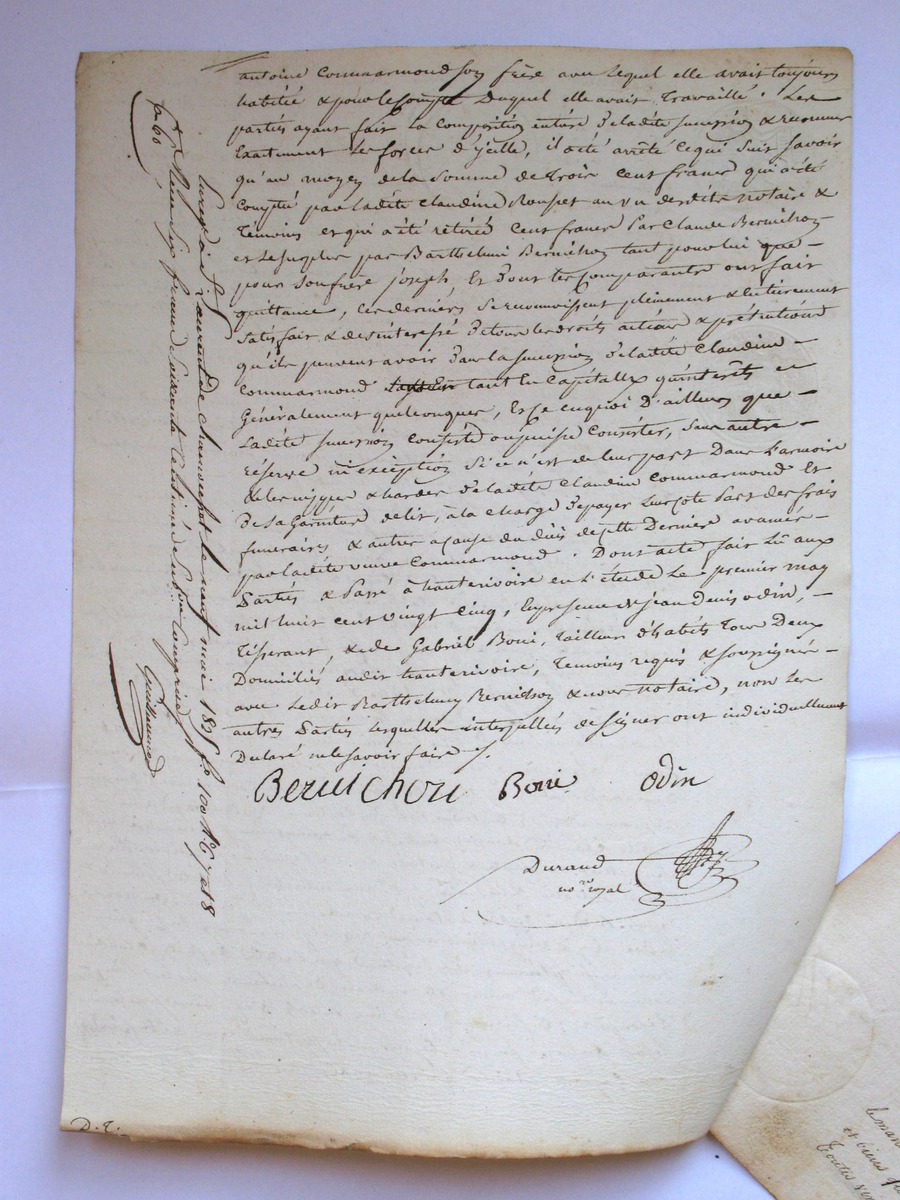 antoine Commarmond son frère avec lequel elle avait toujours
habitée & pour le compte Duquel elle avait travaillé. Les
parties ayant fait la Composition entière De ladite succession & reconnu
Exactement les forces d'ycelle, il a été arrêté Ce qui suit savoir
qu'au moyen de la Somme de trois Cent francs qui a été
Compté par ladite Claudine Rouset au vu desdits notaire &
Témoins et qui a été retirée Cent francs Par Claude Bernichon
et Le surplus par Barthelmi Bernichon tant pour lui que
pour Son frère joseph, Et Dont les Comparants ont fait
quittance, Ces derniers Se reconnoissent pleinement & Entièrement
Satisfait & desinteressé De tous les droits actions & prétentions
qu'ils peuvent avoir Dans la succession De ladite Claudine
Commarmond tant En Capitallx qu'intérêts et
Généralement quelconques, Et en quoi D'ailleurs que
Ladite succession Consiste ou puisse Consister, Sans autre
réserve ni exception Si ce n'est de leur part Dans L'armoire
& les nippes & hardes De ladite Claudine Commarmond Et
De la Garniture de lit, à la charge De payer Leur cote Part des frais
funeraires & autres a cause du décès de cette Dernière avancés
par ladite veuve Commarmond. Dont acte fait Lu aux
Parties & Passé à hauterivoire en L'étude Le premier may
mil huit cent vingt Cinq, En présence de jean Denis odin,
Tisserant, & de Gabriel Boni, Tailleur D'habits Tous Deux
Domiciliés audit hauterivoire, Témoins requis & soussignés
avec Ledit Barthelmy Bernichon & nous notaire, non Les
autres Parties Lesquelles interpellées de signer ont individuellement
Déclaré ne le savoir faire
Bernichon Boni Odin
Durand
no.re royal
Enreg. à St Laurent de chamousset le sept mai 1825 fo 100 Ro C 7 et 8
Reçu six francs soixante centimes
Guillaumod
D.T.
et biens
toutes